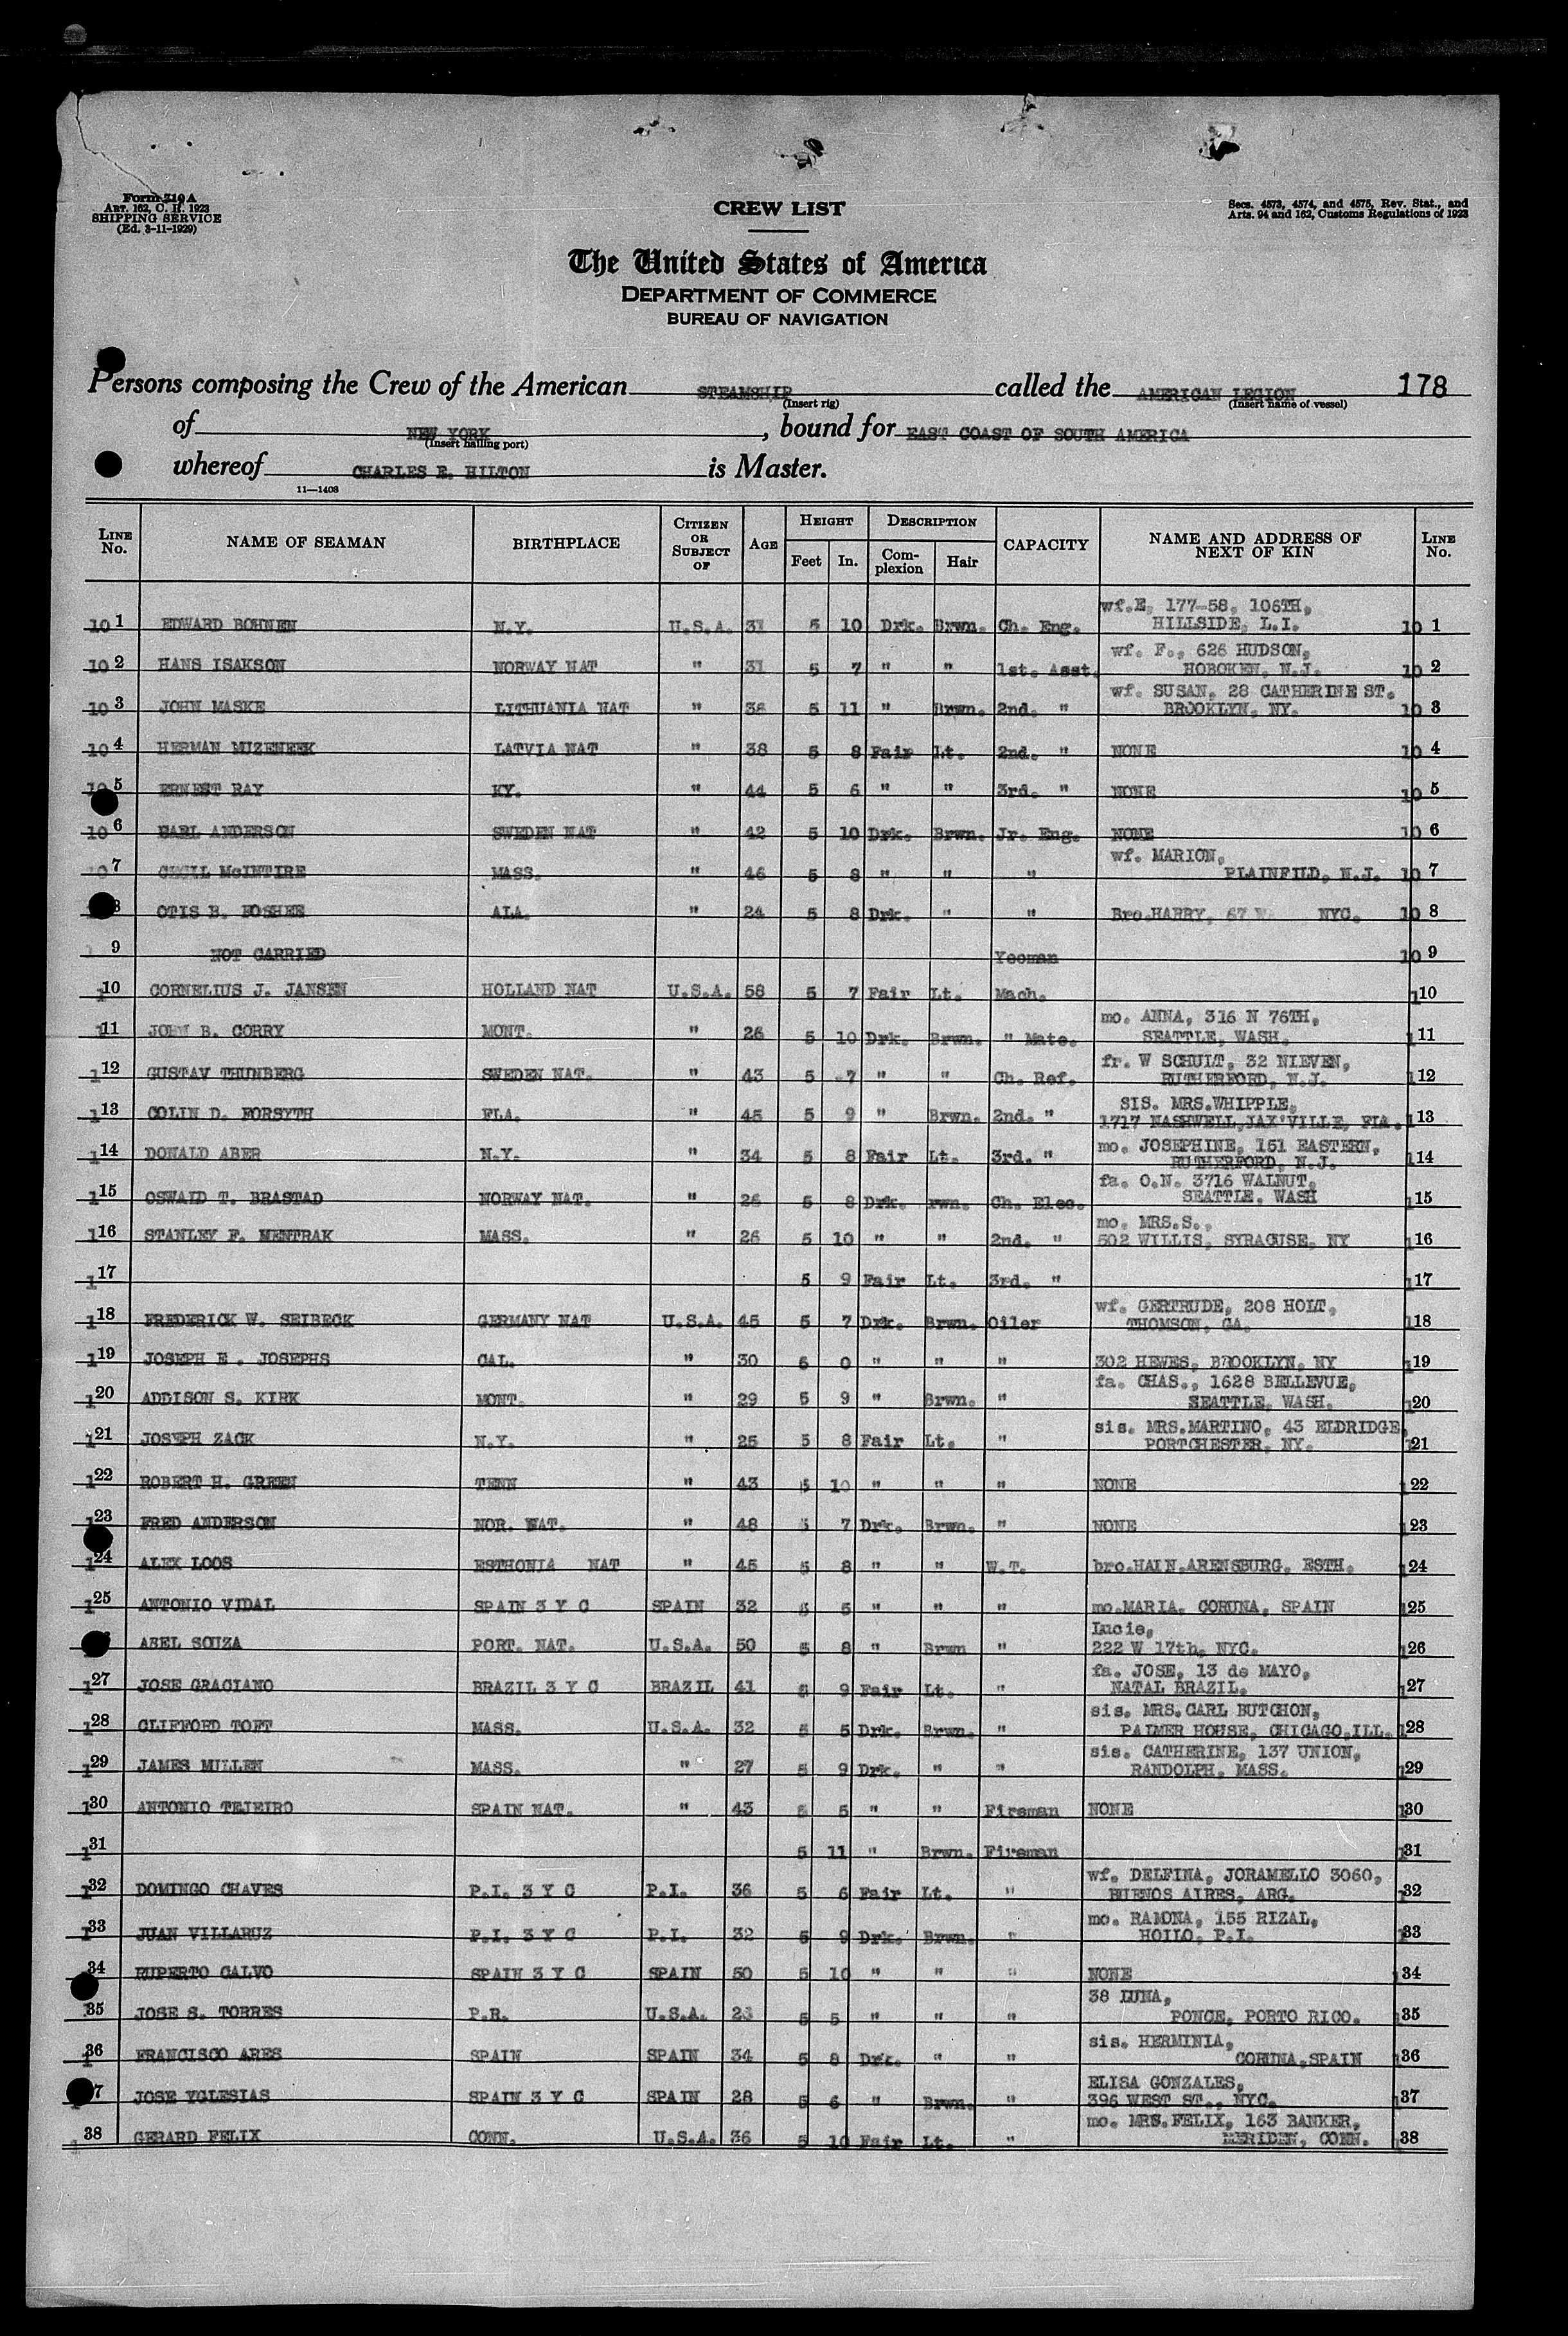 Form 719 A
ART. 162, C. R. 1923
SHIPPING SERVICE
(Ed. 3-11-1929)
CREW LIST
Secs. 4573, 4574, and 4575, Rev. Stat., and
Arts. 94 and 162, Customs Regulations of 1923
The United States of America
DEPARTMENT OF COMMERCE
BUREAU OF NAVIGATION
Persons composing the Crew of the American STEAMSHIP called the AMERICAN LEGION 178
(Insert rig) (Insert name of vessel)
of NEW YORK, bound for EAST COAST OF SOUTH AMERICA
(Insert hailing port)
whereof CHARLES E. HILTON is Master.
11—1408
LINE No. NAME OF SEAMAN BIRTHPLACE CITIZEN OR SUBJECT OF AGE HEIGHT Feet In. DESCRIPTION Complexion Hair CAPACITY NAME AND ADDRESS OF NEXT OF KIN LINE No.
wf.E, 177-58, 106TH,
10 1 EDWARD BOHNEN N.Y. U.S.A. 31 5 10 Drk. Brwn. Ch. Eng. HILLSIDE, L.I. 10 1
wf. F., 626 HUDSON,
10 2 HANS ISAKSON NORWAY NAT " 31 5 7 " " 1st. Asst. HOBOKEN, N.J. 10 2
wf. SUSAN, 28 CATHERINE ST.
10 3 JOHN MASKE LITHUANIA NAT " 38 5 11 " Brwn. 2nd. " BROOKLYN, NY. 10 3
10 4 HERMAN MUZENEEK LATVIA NAT " 38 5 8 Fair Lt. 2nd. " NONE 10 4
10 5 ERNEST RAY KY. " 44 5 6 " " 3rd. " NONE 10 5
10 6 EARL ANDERSON SWEDEN NAT " 42 5 10 Drk. Brwn. Jr. Eng. NONE 10 6
wf. MARION,
10 7 CECIL McINTIRE MASS. " 46 5 8 " " " PLAINFILD, N.J. 10 7
8 OTIS B. FOSHEE ALA. " 24 5 8 Drk. " " Bro.HARRY, 67 W NYC. 10 8
9 NOT CARRIED Yeoman 10 9
110 CORNELIUS J. JANSEN HOLLAND NAT U.S.A. 58 5 7 Fair Lt. Mach. 110
mo. ANNA, 316 N 76TH,
111 JOHN B. CORRY MONT. " 26 5 10 Drk. Brwn. " Mate. SEATTLE, WASH. 111
fr. W SCHULT, 32 NIEVEN,
112 GUSTAV THUNBERG SWEDEN NAT. " 43 5 7 " " Ch. Ref. RUTHERFORD, N.J. 112
SIS. MRS.WHIPPLE,
113 COLIN D. FORSYTH FLA. " 45 5 9 " Brwn. 2nd. " 1717 NASHWELL,JAX'VILLE, FLA. 113
mo. JOSEPHINE, 151 EASTERN,
114 DONALD ABER N.Y. " 34 5 8 Fair Lt. 3rd. " RUTHERFORD, N.J. 114
fa. O.N. 3716 WALNUT,
115 OSWALD T. BRASTAD NORWAY NAT. " 26 5 8 Drk. rwn. Ch. Elec. SEATTLE, WASH 115
mo. MRS.S.,
116 STANLEY F. MENTRAK MASS. " 26 5 10 " " 2nd. " 502 WILLIS, SYRACUSE, NY 116
117 5 9 Fair Lt. 3rd. " 117
wf. GERTRUDE, 208 HOLT,
118 FREDERICK W. SEIBECK GERMANY NAT U.S.A. 45 5 7 Drk. Brwn. Oiler THOMSON, GA. 118
119 JOSEPH E. JOSEPHS CAL. " 30 6 0 " " " 302 HEWES, BROOKLYN, NY 119
fa. CHAS., 1628 BELLEVUE,
120 ADDISON S. KIRK MONT. " 29 5 9 " Brwn. " SEATTLE, WASH. 120
sis. MRS.MARTINO, 43 ELDRIDGE,
121 JOSEPH ZACK N.Y. " 25 5 8 Fair Lt. " PORTCHESTER, NY. 121
122 ROBERT H. GREEN TENN " 43 5 10 " " " NONE 122
123 FRED ANDERSON NOR. NAT. " 48 5 7 Drk. Brwn. " NONE 123
124 ALEX LOOS ESTHONIA NAT " 45 5 8 " " W.T. bro.HAIN.ARENSBURG, ESTH. 124
125 ANTONIO VIDAL SPAIN 3 Y C SPAIN 32 5 5 " " " mo.MARIA, CORUNA, SPAIN 125
Lucie,
ABEL SOUZA PORT. NAT. U.S.A. 50 5 8 " Brwn " 222 W 17th, NYC. 126
fa. JOSE, 13 de MAYO,
127 JOSE GRACIANO BRAZIL 3 Y C BRAZIL 41 5 9 Fair Lt. " NATAL BRAZIL. 127
sis. MRS.CARL BUTCHON,
128 CLIFFORD TOFT MASS. U.S.A. 32 5 5 Drk. Brwn. " PALMER HOUSE, CHICAGO,ILL. 128
sis. CATHERINE, 137 UNION,
129 JAMES MILLEN MASS. " 27 5 9 Drk. " " RANDOLPH, MASS. 129
130 ANTONIO TEJEIRO SPAIN NAT. " 43 5 5 " " Fireman NONE 130
131 5 11 " Brwn. Fireman 131
wf. DELFINA, JORAMELLO 3060,
132 DOMINGO CHAVES P.I. 3 Y C P.I. 36 5 6 Fair Lt. " BUENOS AIRES, ARG. 132
mo. RAMONA, 155 RIZAL,
133 JUAN VILLARUZ P.I. 3 Y C P.I. 32 5 9 Drk. Brwn. " HOILO, P.I. 133
34 RUPERTO CALVO SPAIN 3 Y C SPAIN 50 5 10 " " " NONE 134
38 LUNA,
35 JOSE S. TORRES P.R. U.S.A. 5 5 " " " PONCE, PORTO RICO. 135
sis. HERMINIA,
136 FRANCISCO ARES SPAIN SPAIN 34 5 8 Drk. " " CORUNA,SPAIN 136
ELISA GONZALES,
7 JOSE YGLESIAS SPAIN 3 Y C SPAIN 28 5 6 " Brwn. " 396 WEST ST., NYC. 137
mo. MRS.FELIX, 163 BANKER,
138 GERARD FELIX CONN. U.S.A. 36 5 10 Fair Lt. " MERIDEN, CONN. 138